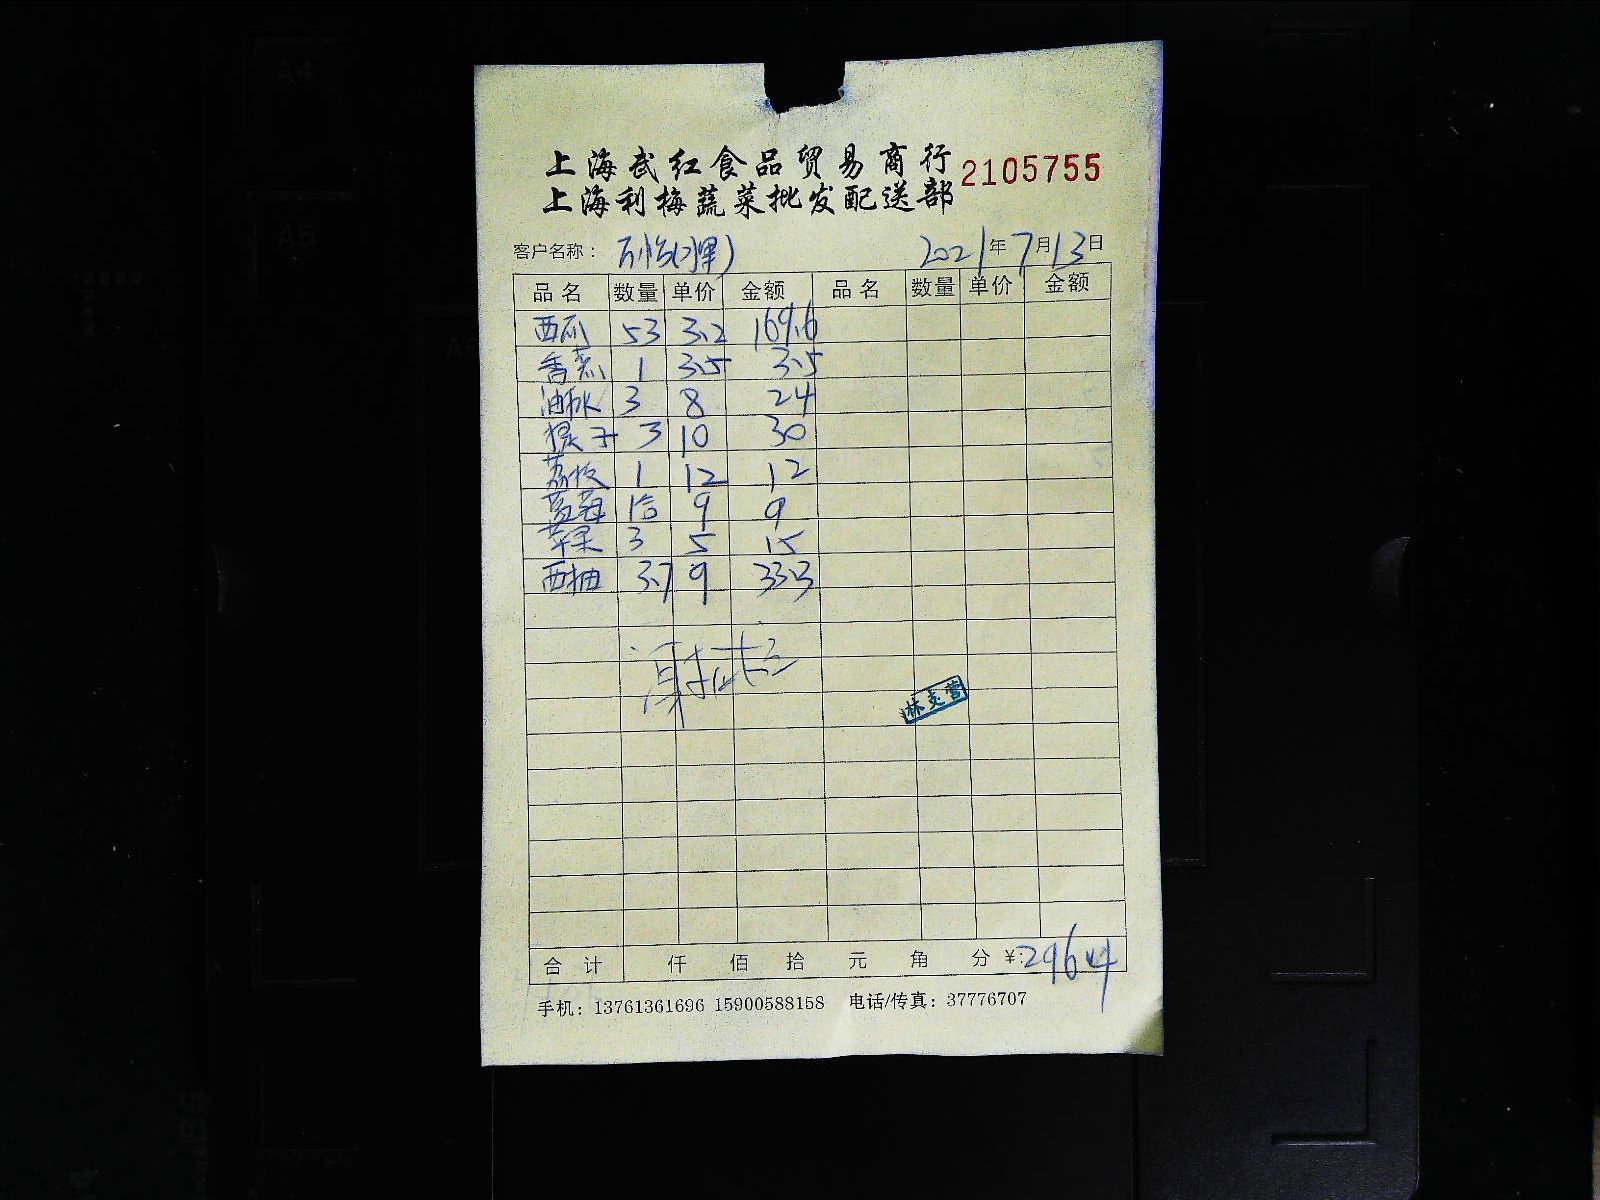 上海武红食品贸易商行
2105755
上海利梅蔬菜批发配送部
客户名称： (水果) 2021年7月13日
品名 数量 单价 金额 品名 数量 单价 金额
西瓜 53 3.2 169.6
香蕉 1 3.5 3.5
油桃 3 8 24
提子 3 10 30
荔枝 1 12 12
蓝莓 1合 9 9
苹果 3 5 15
西柚 3.7 9 33.3
林志营
合计 仟 佰 拾 元 角 分 ¥:296.4
手机：13761361696 15900588158 电话/传真：37776707